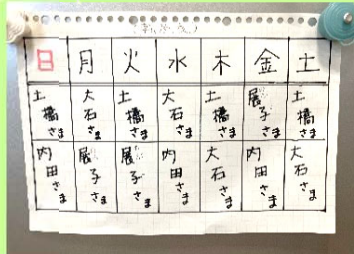 日 月 火 水 木 金 土
土橋さま 大石さま 土橋さま 大石さま 土橋さま 展子さま 土橋さま
内田さま 展子さま 展子さま 内田さま 大石さま 内田さま 大石さま